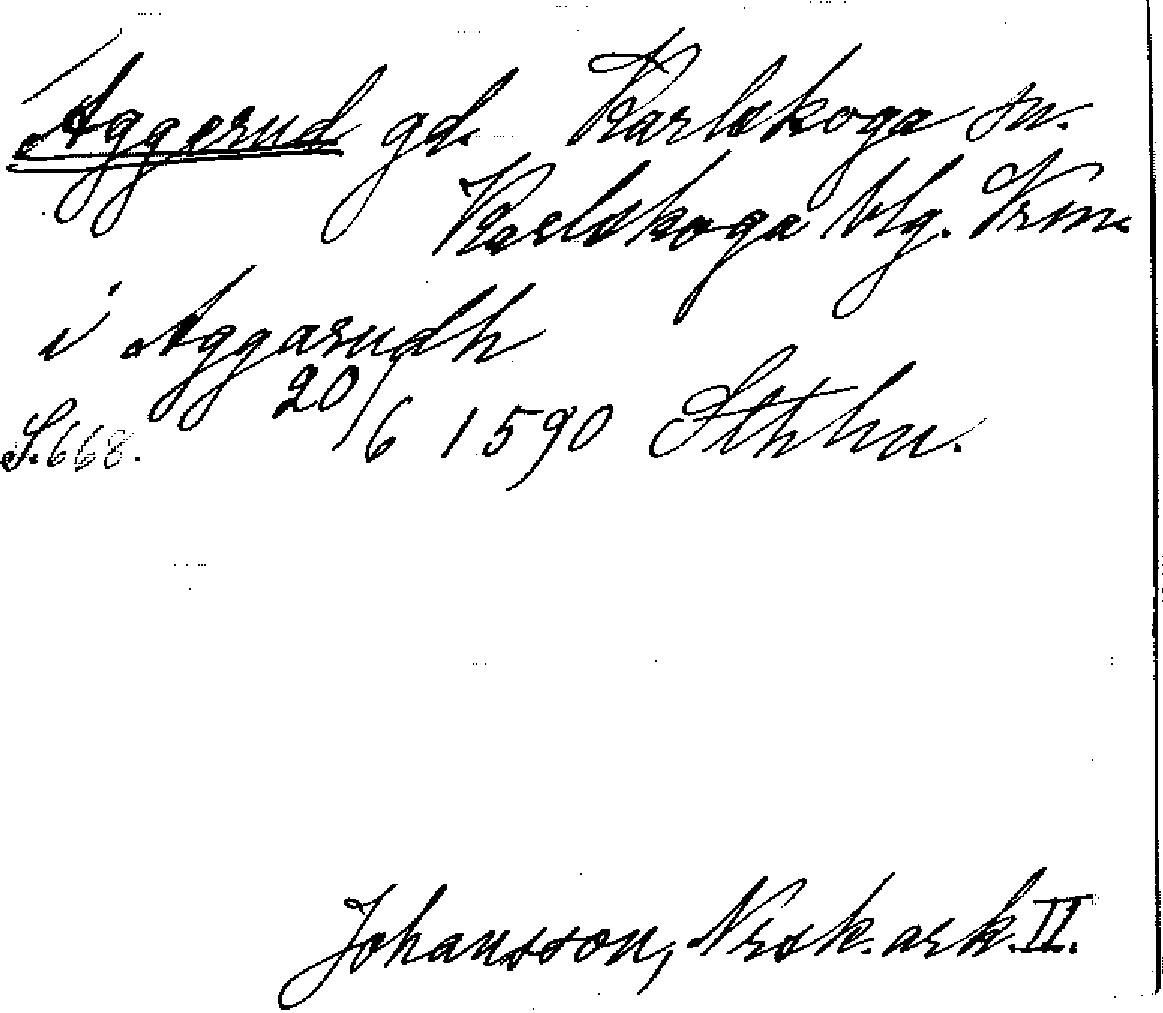 Aggerud gd. Karlskoga sn.
Karlskoga blg. Vrm.
i Aggarudh
20/6 1590 Sthhn.
S. 668.
Johansson, Nrsk. ark. II.